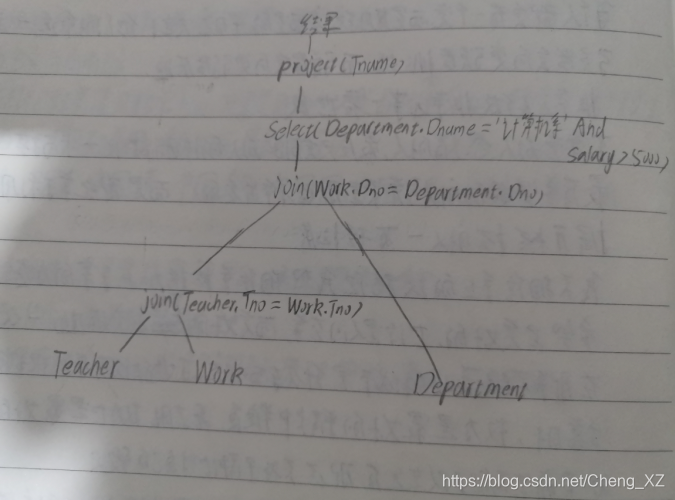 结果
project(Tname)
Select(Department.Dname='计算机系' And
Salary>5000)
join(Work.Dno=Department.Dno)
join(Teacher.Tno=Work.Tno)
Teacher
Work
Department
https://blog.csdn.net/Cheng_XZ